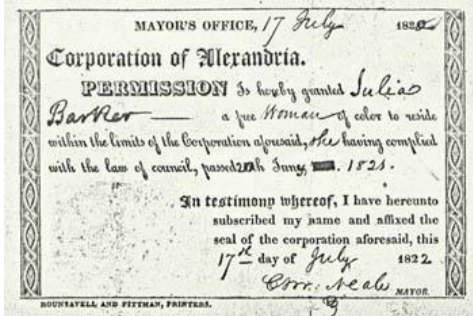 MAYOR'S OFFICE, 17 July 182
Corporation of Alexandria.
PERMISSION Is hereby granted Julia
Barker a free Woman of color to reside
within the limits of the Corporation aforesaid, she having complied
with the law of council, passed 1821.
In testimony whereof, I have hereunto
subscribed my name and affixed the
seal of the corporation aforesaid, this
17th day of July 1822
Neale MAYOR.
ROUNSAVELL AND PITTMAN, PRINTERS.